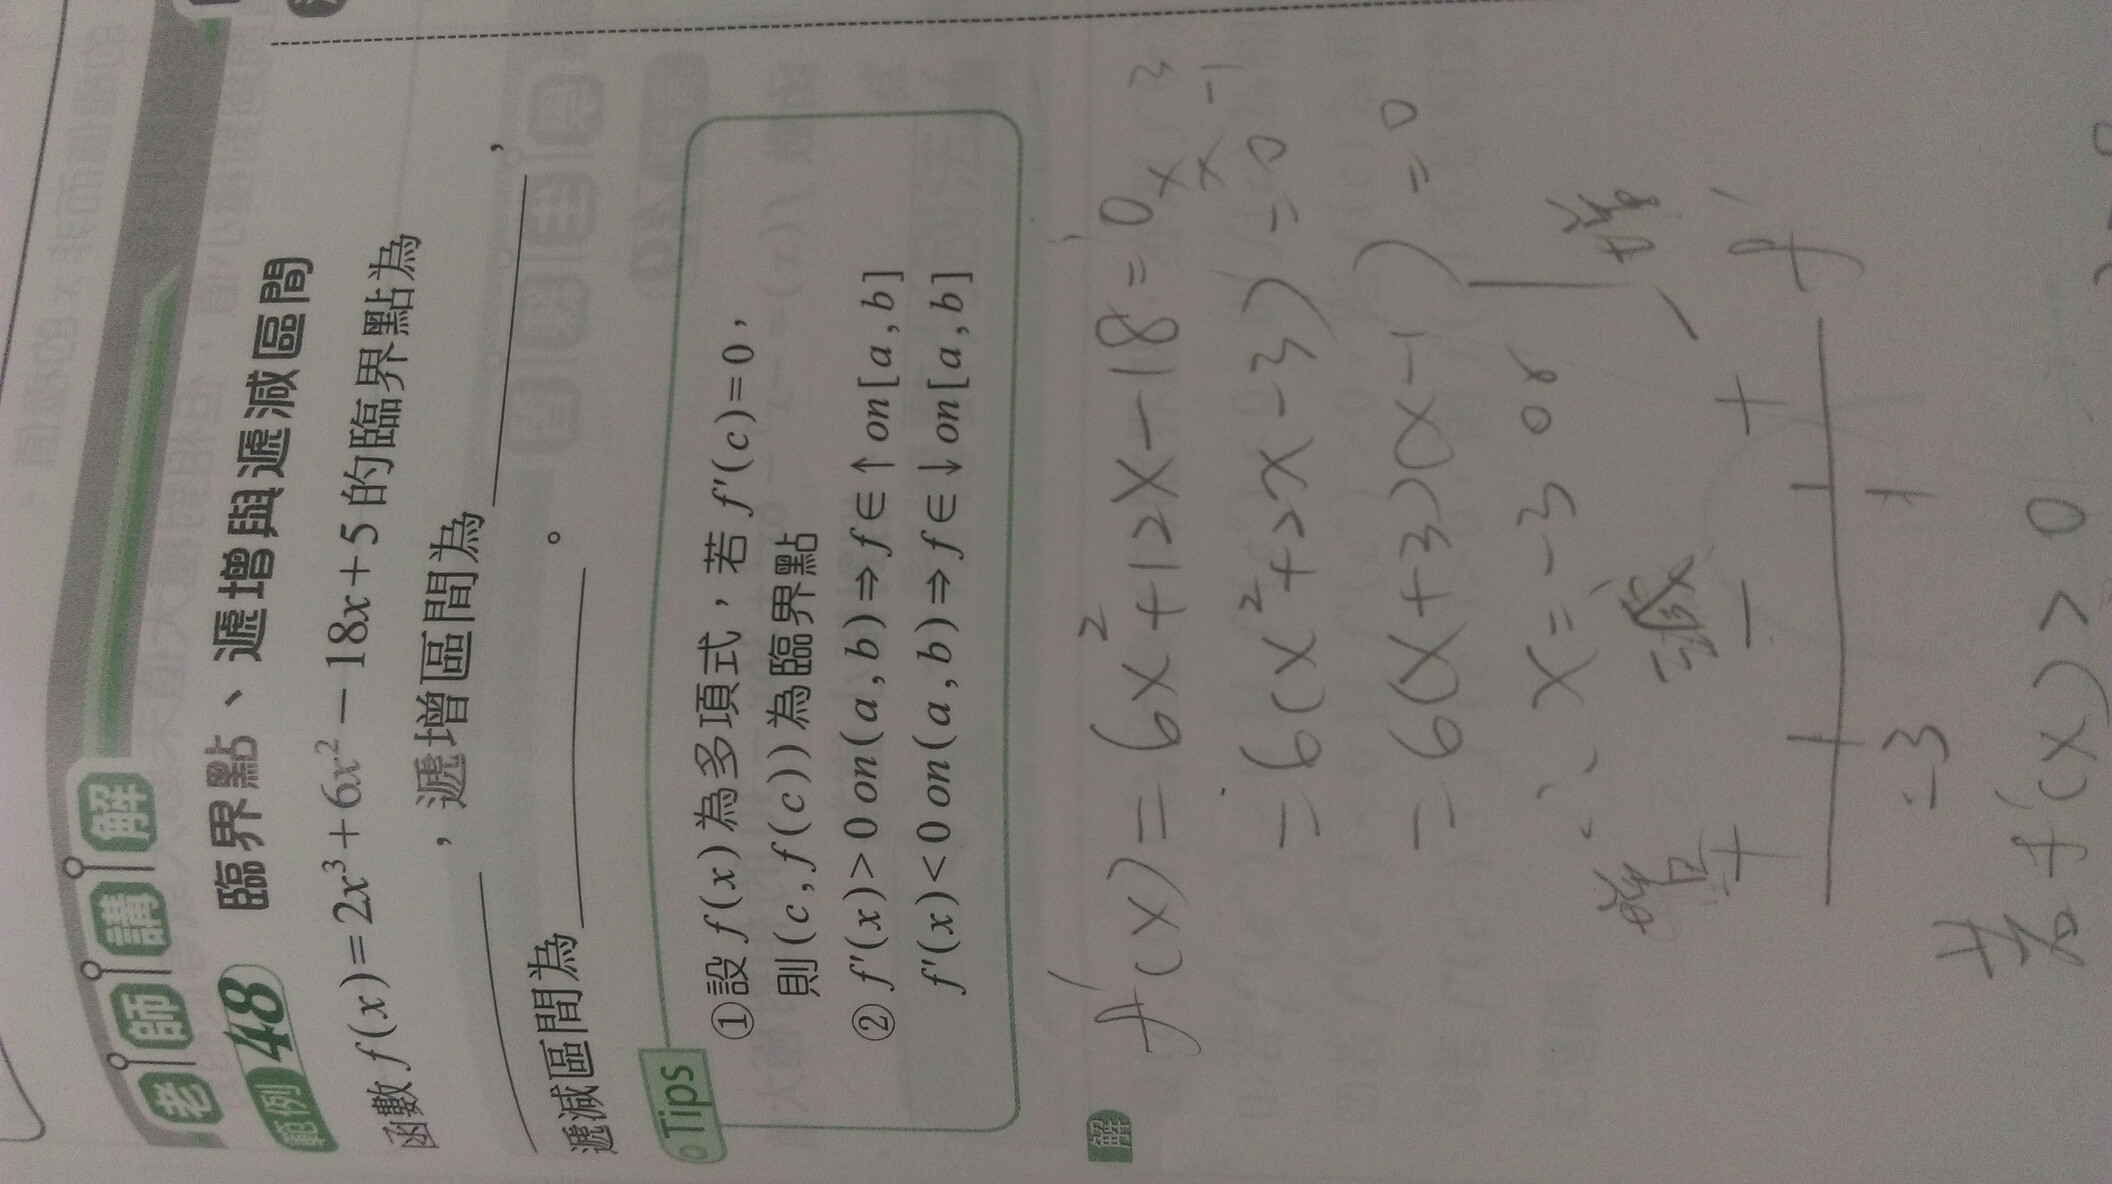 老師講解
範例 48 臨界點、遞增與遞減區間
函數 f(x)=2x³+6x²−18x+5 的臨界點為
，遞增區間為 ，
遞減區間為 。
Tips
①設 f(x) 為多項式，若 f'(c)=0，
則(c,f(c))為臨界點
② f'(x)>0 on(a,b)⇒f∈↑on[a,b]
f'(x)<0 on(a,b)⇒f∈↓on[a,b]
解
f'(x)=6x²+12x−18=0
x 3
x −1
=6(x²+2x−3)=0
=6(x+3)(x−1)=0
∴ x=−3 or 1
增 減 增
+ − + f'
−3 1
若 f'(x)>0